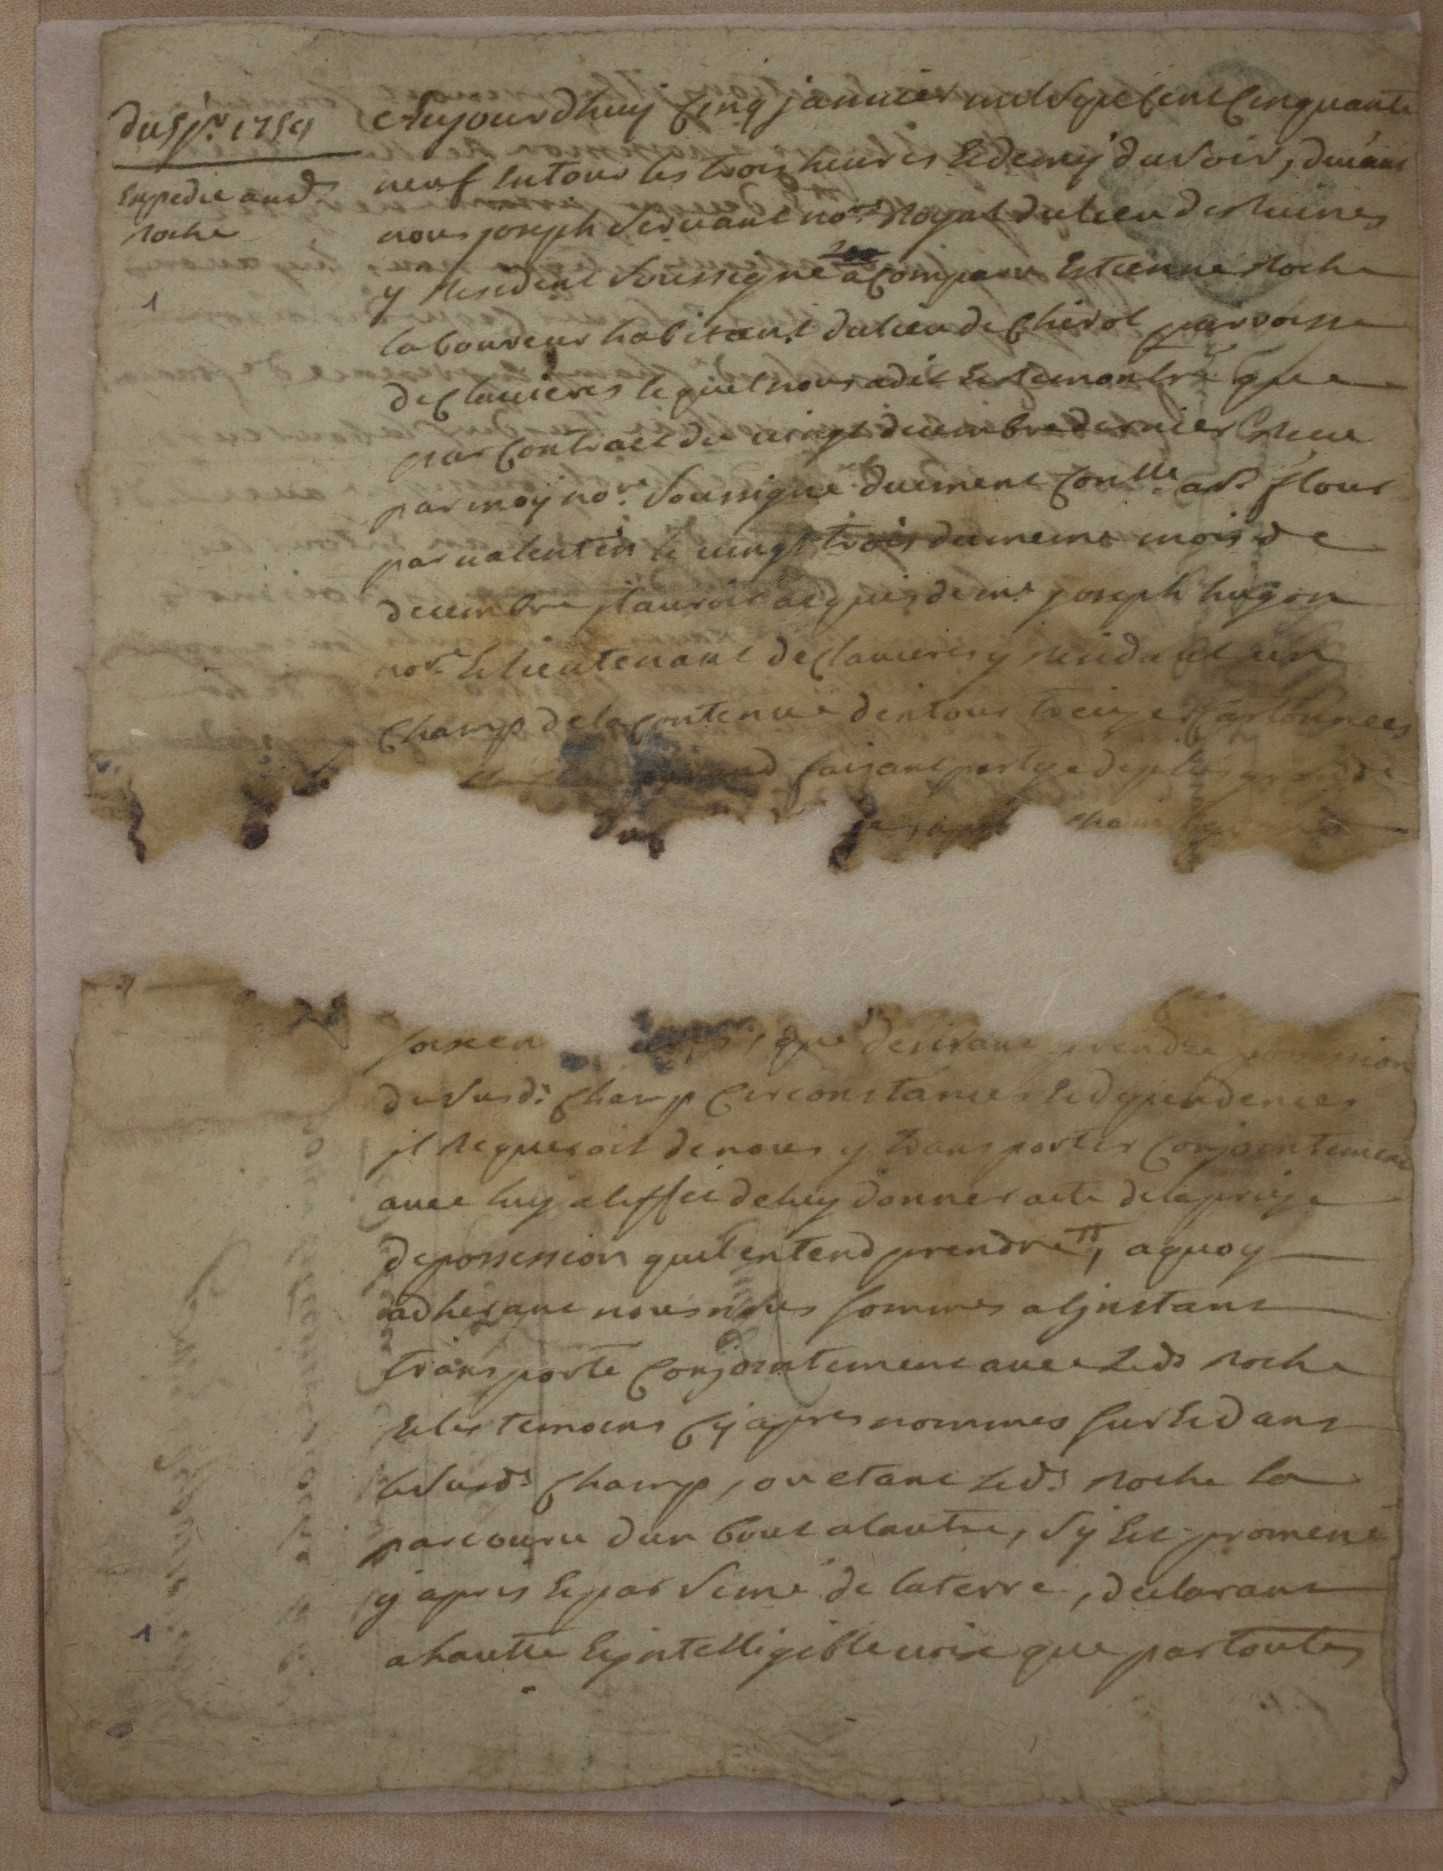 du 5 jr. 1759
Expedié aud.
Roche
1
Aujourdhuy cinq janvier mil sept cent cinquante
neuf entour les trois heures et demy du soir, devant
nous joseph servant nore. Royal du lieu de Ruines
y resident soussigné a comparu Estienne Roche
laboureur habitant du lieu de Cherol parroisse
de Clavieres lequel nous a dit et remontré que
par contract du vingt decembre dernier receu
par moy nore. soussigné duement conllé a St. flour
par valentin le vingt trois du meme mois de
decembre jl auroit acquis de me. joseph hugon
nore. et lieutenant de Clavieres y residant un
champ de la contenue dentour treize cartonnees
faisant partye de plus grande
que desirant prendre possession
du susd. champ circonstances et dependences
jl requeroit de nous y transporter conjointement
avec luy a leffet de luy donner acte de la prise
de possession quil entend prendre, a quoy
adherant nous nous sommes a ljnstant
transporté conjointement avec led. Roche
et les temoins cy apres nommes sur et dans
le susd. champ, ou etant led. Roche la
parcouru dun bout a lautre, sy est promené
y apris et par semé de la terre, declarant
a hautte et jntelligible voix que par toutes
1